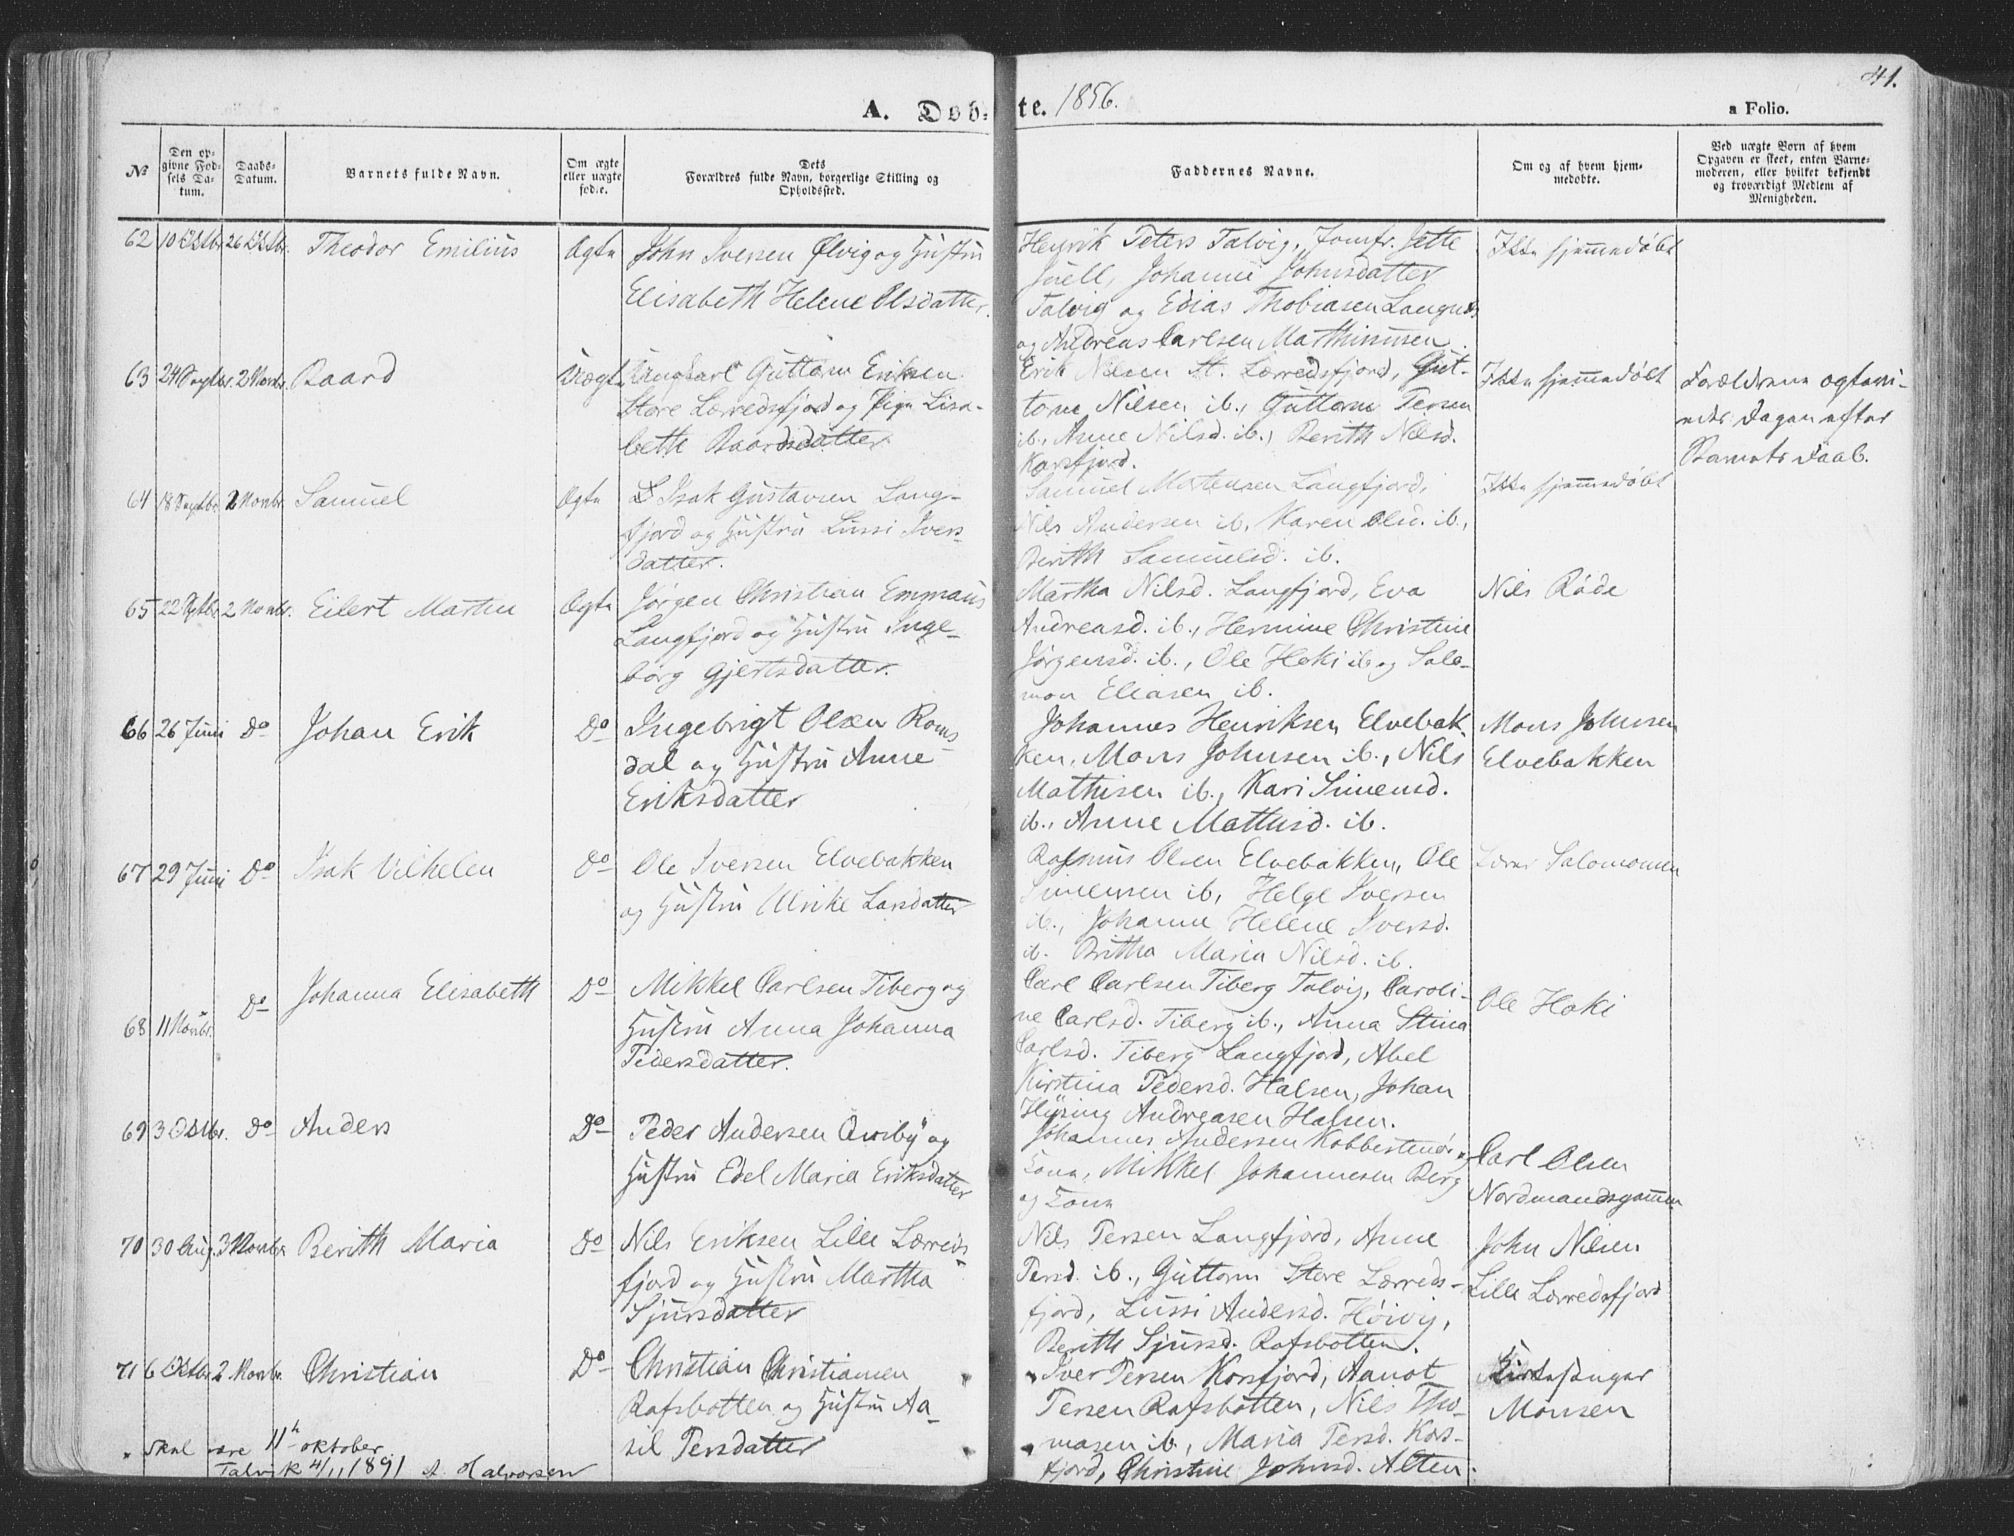 41.
A. Døb-
te. 1856.
a Folio.
No
Den op-
givne Fød-
sels Da-
tum.
Daabs-
Datum.
Barnets fulde Navn.
Om ægte
eller uægte
født.
Dets
Forældres fulde Navn, borgerlige Stilling og
Opholdssted.
Faddernes Navne.
Om og af hvem hjem-
medøbte.
Ved uægte Børn af hvem
Opgaven er skeet, enten Barne-
moderen, eller hvilket bekjendt
og troværdigt Medlem af
Menigheden.
62 10 Octbr. 26 Octbr. Theodor Emilius Ægte John Iversen Ølvig og Hustru
Elisabeth Helene Olsdatter.
Henrik Peters Talvig, Jomfr. Jette
Juell, Johanne Johnsdatter
Talvig og Edias Thobiasen Langnes
og Andreas Carlsen Marthinusen.
Ikke hjemmedøbt
63 24 Septbr. 2 Novbr. Baard Uægte Ungkarl Guttorm Eriksen
Store Lærredsfjord og Pige Lisa-
beth Baardsdatter.
Erik Nilsen St. Lærredsfjord, Gut-
torm Nilsen ib., Guttorm Persen
ib., Anne Nilsd. ib., Berith Nilsd.
Korsfjord.
Ikke hjemmedøbt
Forældrene ægtevi-
edes Dagen efter
Barnets Daab.
64 18 Septbr. 2 Novbr. Samuel Ægte Isak Gustavsen Lang-
fjord og Hustru Lussi Ivers-
datter.
Samuel Mortensen Langfjord,
Nils Andersen ib., Karen Olsd. ib.,
Berith Samuelsd. ib.
Ikke hjemmedøbt
65 22 Septbr. 2 Novbr. Eilert Martin Ægte Jørgen Christian Emmaus
Langfjord og Hustru Inge-
borg Gjertsdatter.
Martha Nilsd. Langfjord, Eva
Andreasd. ib., Hermine Christine
Jørgensd. ib., Ole Hoki ib. og Salo-
mon Eliasen ib.
Nils Røde
66 26 Juni Do Johan Erik Do Ingebrigt Olsen Roms-
dal og Hustru Anne
Eriksdatter
Johannes Henriksen Elvebak-
ken, Mons Johnsen ib., Nils
Mathisen ib., Kari Simensd.
ib., Anne Mathisd. ib.
Mons Johnsen
Elvebakken
67 29 Juni Do Isak Vilhelm Do Ole Iversen Elvebakken
og Hustru Ulrike Larsdatter
Rasmus Olsen Elvebakken, Ole
Simensen ib., Helge Iversen
ib., Johanne Helene Iversd.
ib. Britha Maria Nilsd. ib.
Lærer Salomonsen
68 11 Novbr. Do Johanna Elisabeth Do Mikkel Carlsen Tiberg og
Hustru Anna Johanna
Pedersdatter.
Carl Carlsen Tiberg Talvig, Caroli-
ne Carlsd. Tiberg ib., Anna Stina
Carlsd. Tiberg Langfjord, Abel
Kirstina Pedersd. Halsen, Johan
Hysing Andreasen Halsen.
Ole Hoki
69 3 Octbr. Do Anders Do Peder Andersen Qviby og
Hustru Edel Maria Eriksdatter
Johannes Andersen Kobbertenør og
Kone, Mikkel Johannesen Berg
og Kone
Carl Olsen
Nordmandsgammen
70 30 Aug. 3 Novbr. Berith Maria Do Nils Eriksen Lille Lærreds-
fjord og Hustru Martha
Sjursdatter
Nils Persen Langfjord, Anne
Persd. ib., Guttorm Store Lærreds-
fjord, Lussi Andersd. Høivig,
Berith Sjursd. Rafsbotten.
John Nilsen
Lille Lærredsfjord
71 6 Octbr. 2 Novbr. Christian Do Christian Christiansen
Rafsbotten og Hustru Aa-
sil Persdatter
Iver Persen Korsfjord, Aanot
Persen Rafsbotten, Nils Tho-
masen ib., Maria Persd. Kors-
fjord, Christine Johnsd. Alten.
Kirkesanger
Monsen
Skal være 11te oktober
Talvik 4/11 1891 A. Halvorsen